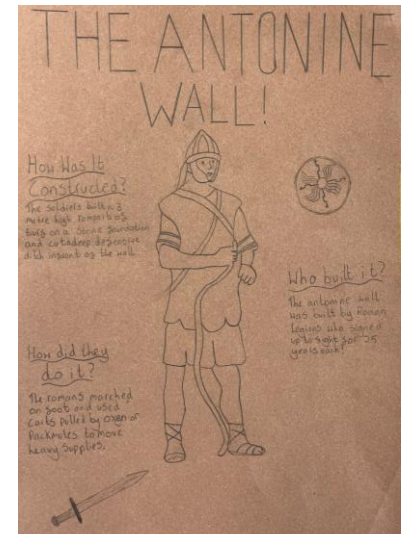 THE ANTONINE
WALL!
How Was It
Constructed?
The soldiers built a 3
metre high rampart of
turf on a stone foundation
and cut a deep defensive
ditch infront of the wall
Who built it?
The antonine wall
was built by Roman
legions who signed
up to fight for 25
years each!
How did they
do it?
The romans marched
on foot and used
carts pulled by oxen or
Packmules to move
heavy supplies.